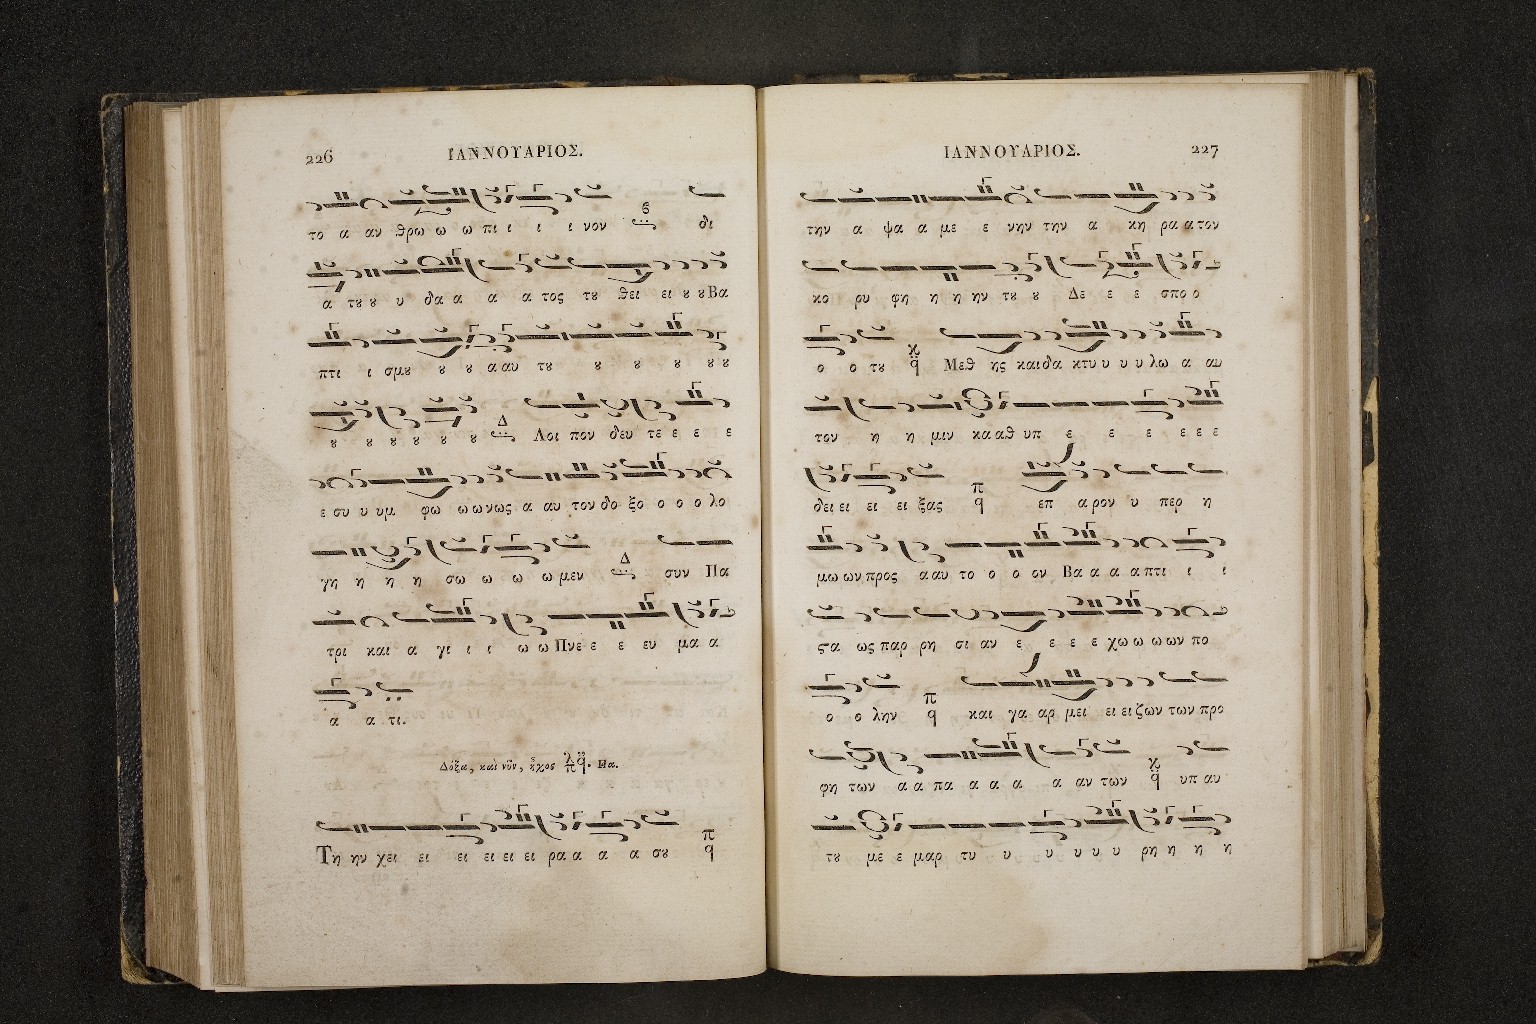 226
ΙΑΝΝΟΥΑΡΙΟΣ.
το α αν θρω ω ω πι ι ι ι νον δι
α τȣ ȣ υ δα α α α τος τȣ θει ει ȣ ȣ Βα
πτι ι σμȣ ȣ ȣ α αυ τȣ ȣ ȣ ȣ ȣ ȣ
ȣ ȣ ȣ ȣ ȣ ȣ Δ Λοι πον δευ τε ε ε ε
ε συ υ υμ φω ω ω νως α αυ τον δο ξο ο ο ο λο
γη η η η σω ω ω ω μεν Δ συν Πα
τρι και α γι ι ι ω ω Πνε ε ε ευ μα α
α α τι.
Δόξα, καὶ νῦν, ἦχος λ π q. Πα.
Τη ην χει ει ει ει ει ει ρα α α α σȣ π q
ΙΑΝΝΟΥΑΡΙΟΣ.
227
την α ψα α με ε νην την α κη ρα α τον
κο ρυ φη η η ην τȣ ȣ Δε ε ε σπο ο
ο ο τȣ q Μεθ ης και δα κτυ υ υ υ λω α αυ
τον η η μιν κα αθ υπ ε ε ε ε ε ε
δει ει ει ει ξας π q επ α ρον υ περ η
μω ων προς α αυ το ο ο ον Βα α α α πτι ι ι
ϛα ως παρ ρη σι αν ε ε ε ε χω ω ω ων πο
ο ο λην π q και γα αρ μει ει ει ζων των προ
φη των α α πα α α α α αν των q υπ αυ
τȣ με ε μαρ τυ υ υ υ υ υ ρη η η η